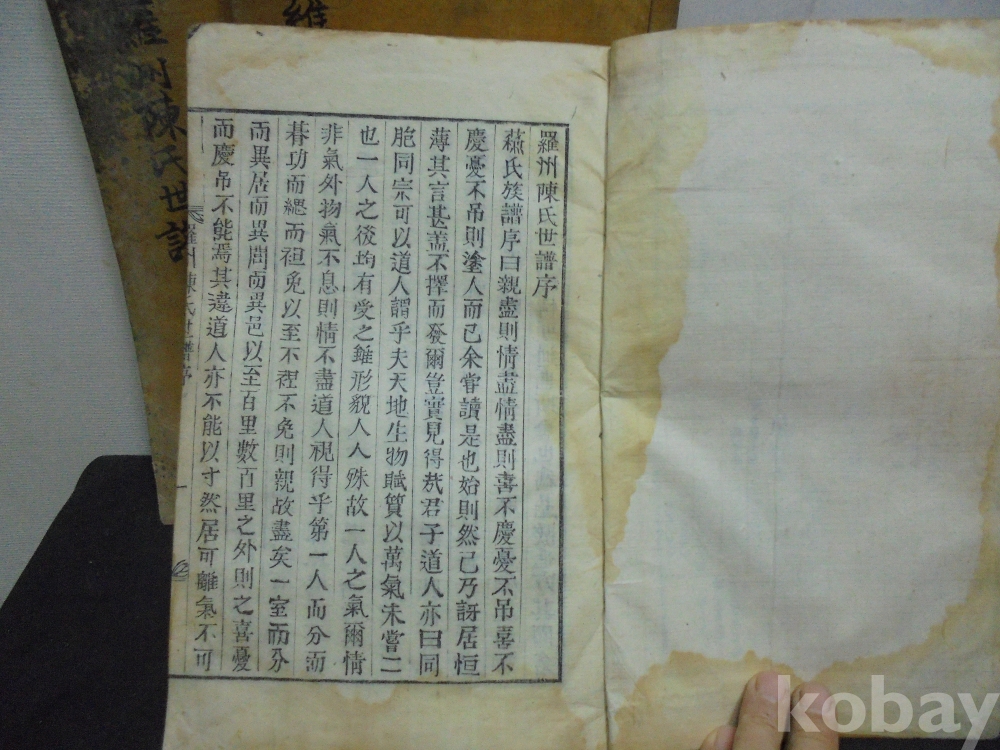 羅州陳氏世譜序
蘇氏族譜序曰親盡則情盡情盡則喜不慶憂不吊喜不
慶憂不吊則塗人而已余嘗讀是也始則然已乃訝居恒
薄其言甚蓋不擇而發爾豈實見得㢤君子道人亦曰同
胞同宗可以道人謂乎夫天地生物賦質以萬氣未嘗二
也一人之後均有愛之雖形貌人人殊故一人之氣爾情
非氣外物氣不息則情不盡道人視得乎第一人而分而
朞功而緦而袒免以至不裎不免則親故盡矣一室而分
而異居而異閭而異邑以至百里數百里之外則之喜憂
而慶吊不能焉其違道人亦不能以寸然居可離氣不可
羅州陳氏世譜序
一
羅州陳氏世譜
羅
kobay